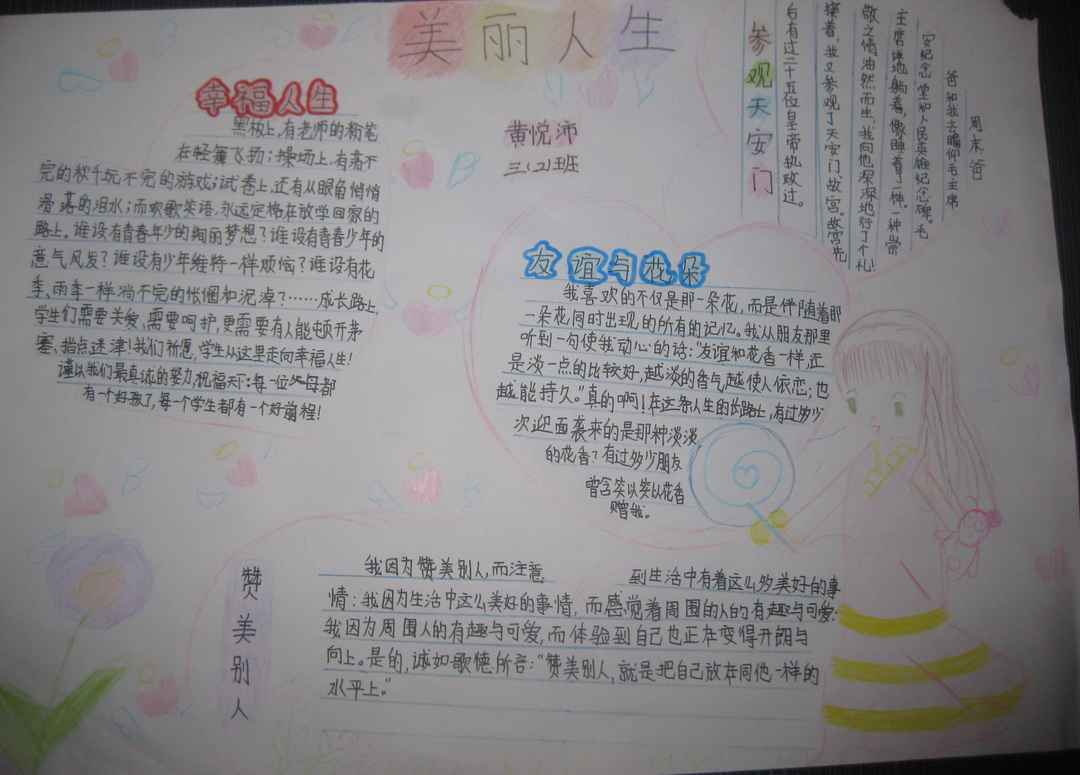 美丽人生
黄悦沛
三(2)班
幸福人生
黑板上,有老师的粉笔
在轻舞飞扬;操场上,有荡不
完的秋千玩不完的游戏;试卷上,还有从眼角悄悄
滑落的泪水;而欢歌笑语,永远定格在放学回家的
路上。谁没有青春年少的绚丽梦想?谁没有青春少年的
意气风发?谁没有少年维特一样烦恼?谁没有花
季、雨季一样淌不完的怅惘和泥淖?……成长路上,
学生们需要关爱,需要呵护,更需要有人能顿开茅
塞、指点迷津!我们祈愿,学生从这里走向幸福人生!
谨以我们最真诚的努力,祝福天下:每一位父母都
有一个好孩子,每一个学生都有一个好前程!
参观天安门
周末爸
爸和我去瞻仰毛主席
安纪念堂和人民英雄纪念碑。毛
主席详地躺着,像睡着了一样。一种崇
敬之情油然而生,我向他深深地行了个礼!
接着,我又参观了天安门、故宫。故宫先
台有过二十五位皇帝执政过。
友谊与花朵
我喜欢的不仅是那一朵花,而是伴随着那
一朵花同时出现的所有的记忆。我从朋友那里
听到一句使我动心的话:“友谊和花香一样,还
是淡一点的比较好,越淡的香气越使人依恋;也
越能持久。”真的啊!在这条人生的长路上,有过多少
次迎面袭来的是那种淡淡
的花香?有过多少朋友
曾含笑以笑以花香
赠我。
赞美别人
我因为赞美别人,而注意 到生活中有着这么多美好的事
情:我因为生活中这么美好的事情,而感觉着周围的人的有趣与可爱:
我因为周围人的有趣与可爱,而体验到自己也正在变得开朗与
向上。是的,诚如歌德所言:“赞美别人,就是把自己放在同他一样的
水平上。”